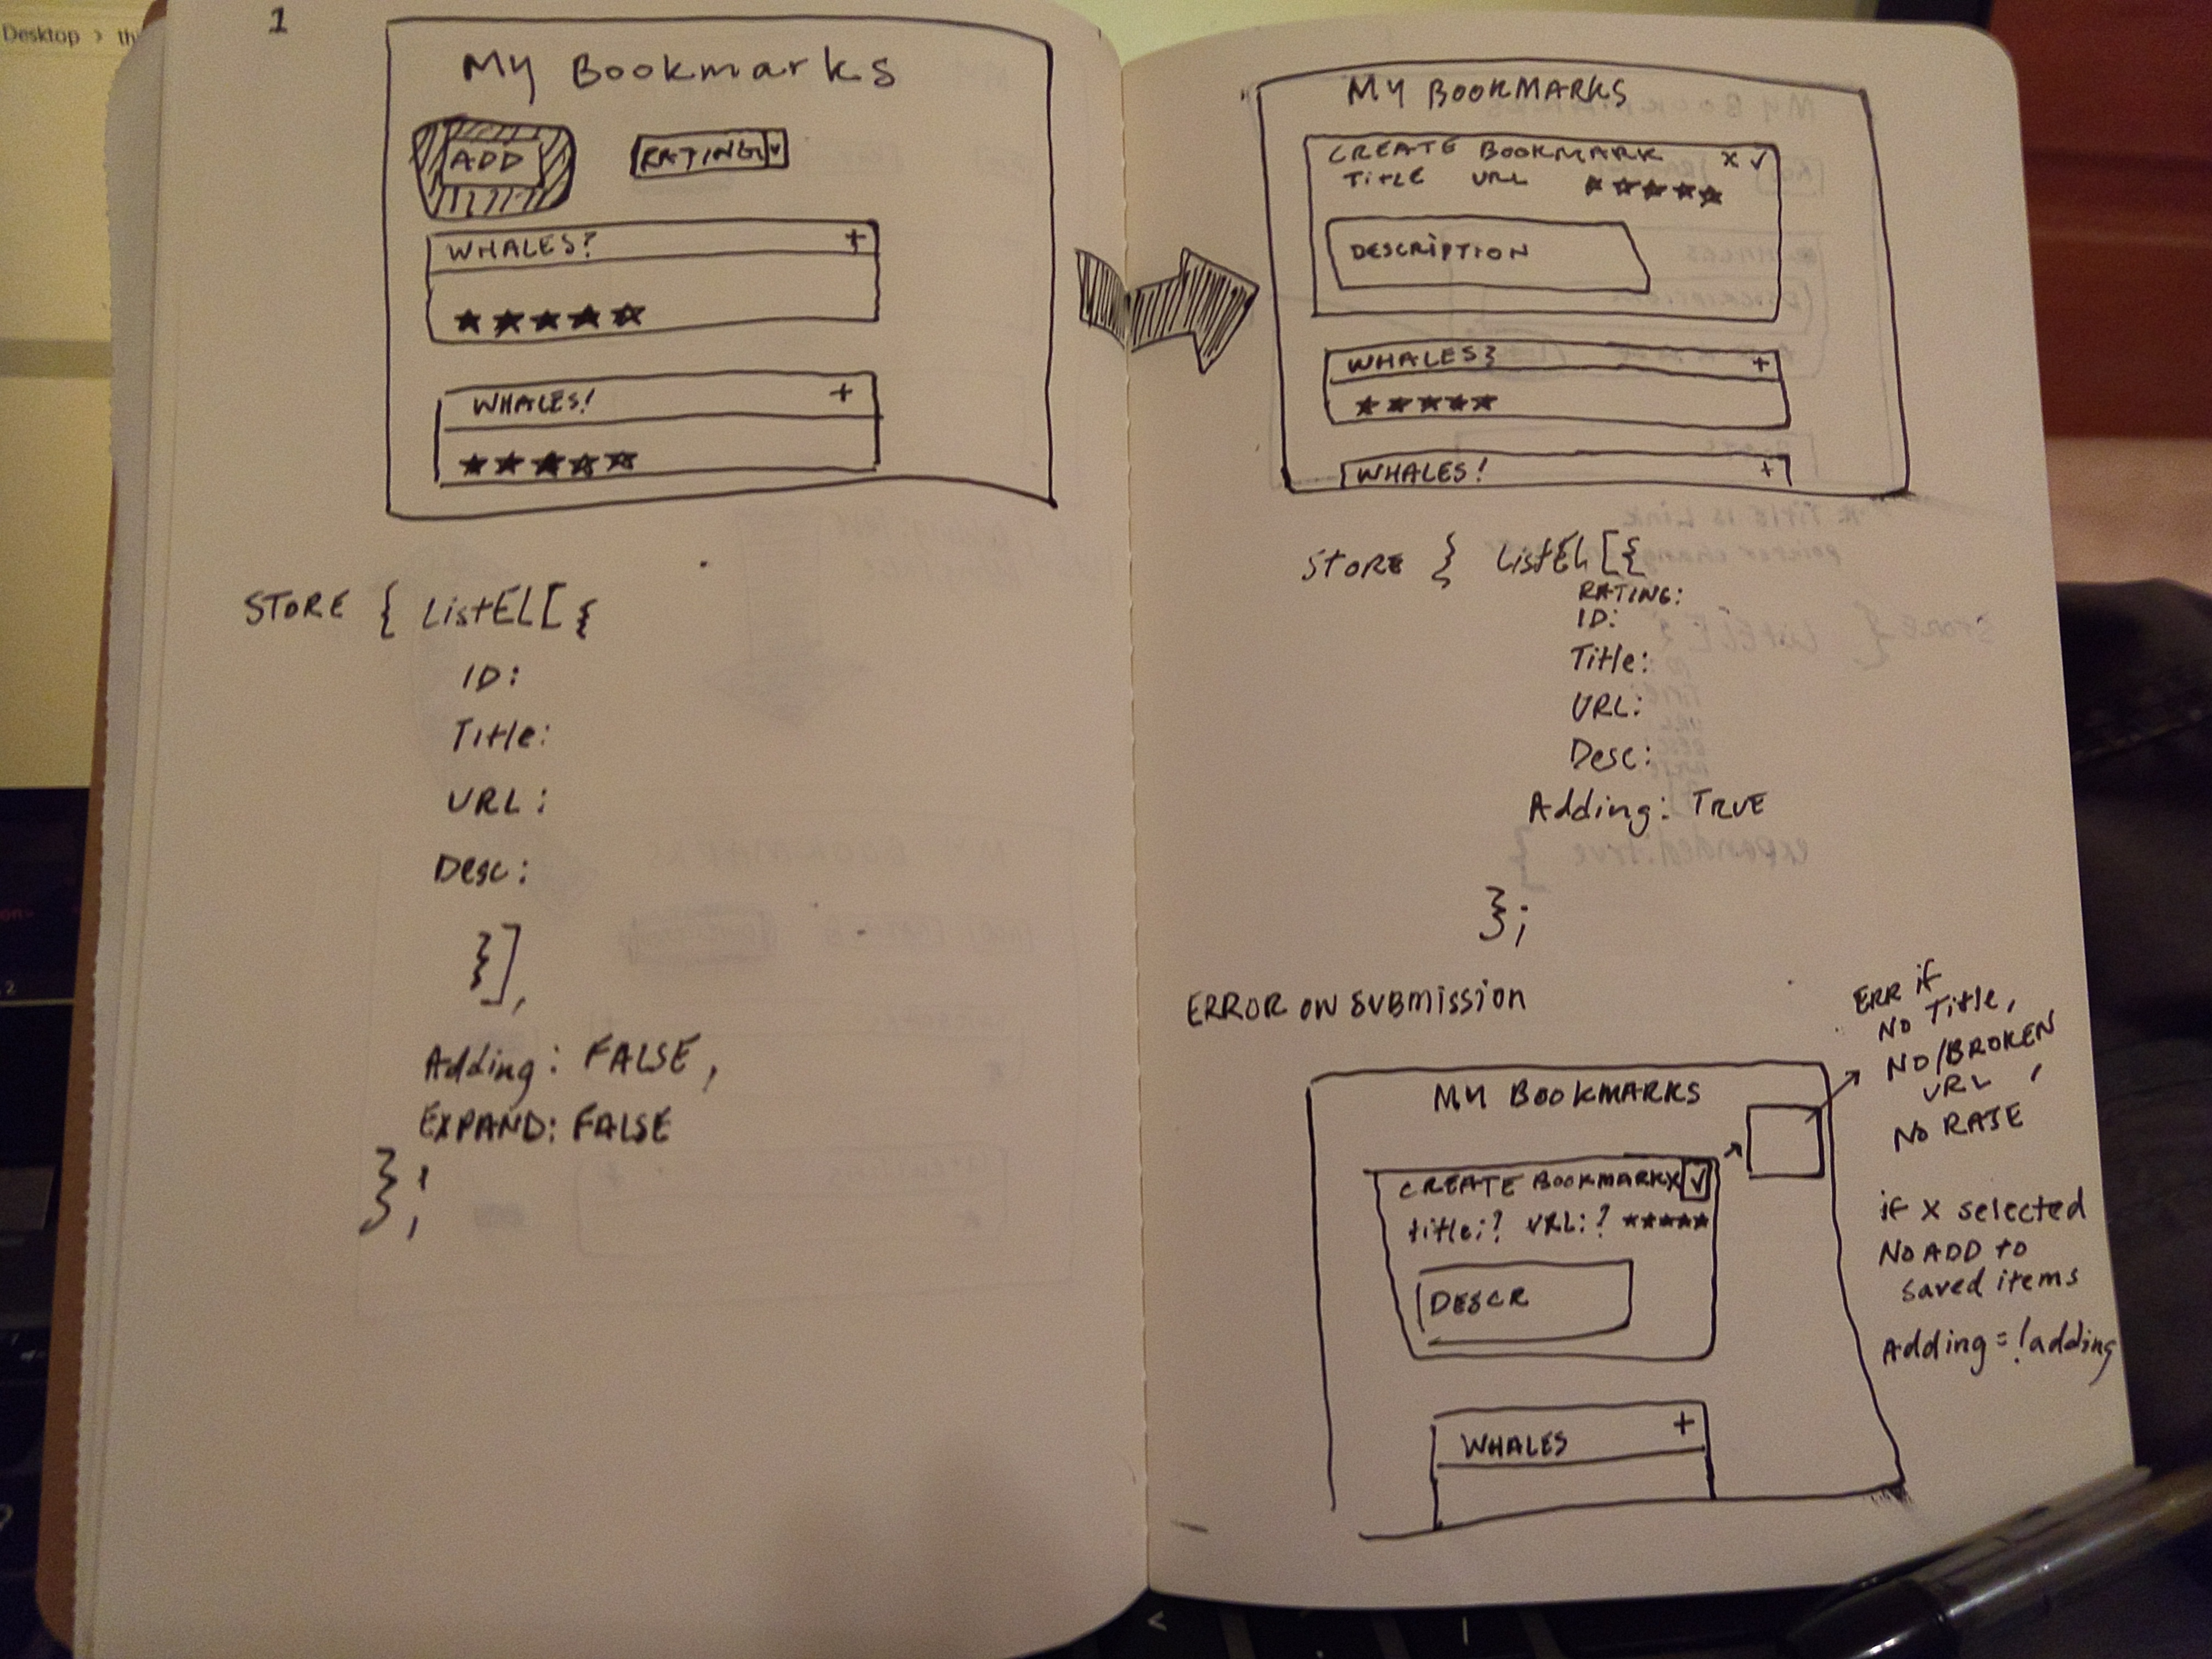 Desktop >
1
My Bookmarks
ADD
RATING
WHALES?
+
WHALES!
+
STORE { ListEL[{
ID:
Title:
URL:
Desc:
}],
Adding: FALSE,
EXPAND: FALSE
};
MY BOOKMARKS
CREATE BOOKMARK X ✓
TITLE URL
DESCRIPTION
WHALES?
+
WHALES!
+
STORE } ListEL[{
RATING:
ID:
Title:
URL:
Desc:
Adding: TRUE
};
ERROR ON SUBMISSION
ERR if
NO Title,
NO/BROKEN
URL,
NO RATE
MY BOOKMARKS
CREATE BOOKMARK X ✓
title:? URL:?
DESCR
WHALES
+
if X selected
NO ADD to
saved items
Adding = !adding